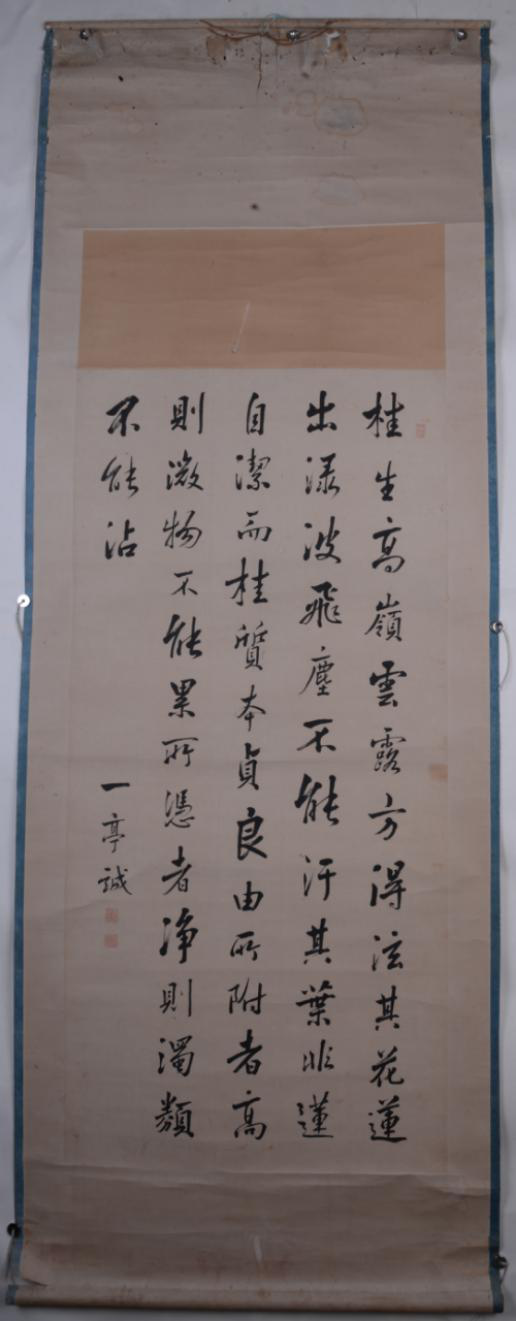 桂生高嶺雲露方得泫其花蓮
出淥波飛塵不能汙其葉非蓮
自潔而桂質本貞良由所附者高
則微物不能累所憑者净則濁類
不能沾
一亭誠